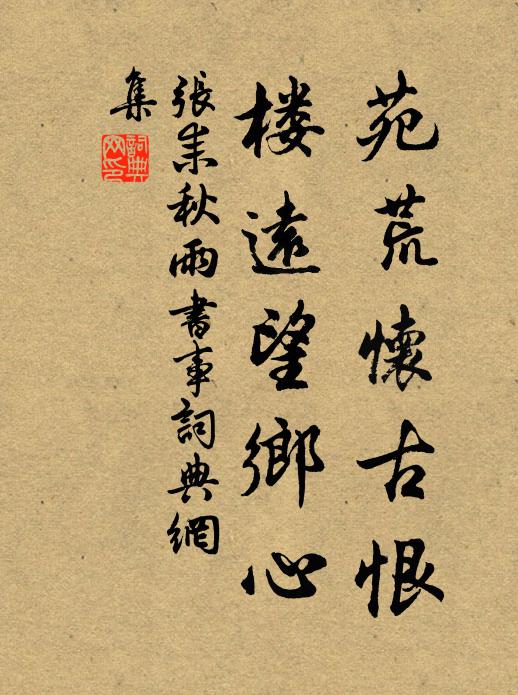 苑荒懷古恨
楼遠望鄉心
張耒秋雨書事詞典網
集
詞典
网印